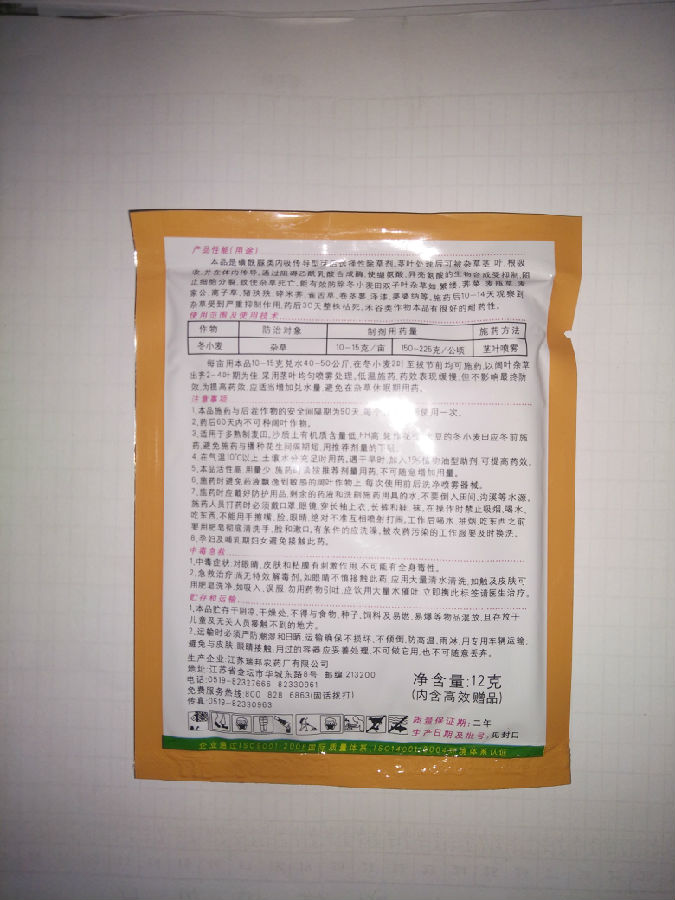 产品性能(用途)
本品是磺酰脲类内吸传导型芽后选择性除草剂,茎叶处理后可被杂草茎叶、根吸
收,并在体内传导,通过阻碍乙酰乳酸合成酶,使缬氨酸、异亮氨酸的生物合成受抑制,阻
止细胞分裂,致使杂草死亡,能有效防除冬小麦田双子叶杂草如
家公、离子草、猪殃殃、碎米荠、雀舌草、卷茎蓼、泽漆、婆婆纳等。施药后10-14天观察到
杂草受到严重抑制作用,药后30天整株枯死。禾谷类作物本品有很好的耐药性。
使用范围及使用技术
作物 防治对象 制剂用药量 施药方法
冬小麦 杂草 10-15克/亩 150-225克/公顷 茎叶喷雾
每亩用本品10-15克兑水40-50公斤,在冬小麦2叶至拔节前均可施药,以阔叶杂草
出齐2-4叶期为佳,采用茎叶均匀喷雾处理。低温施药,药效表现缓慢,但不影响最终防
效,为提高药效,应适当增加兑水量,避免在杂草休眠期用药。
注意事项
1.本品施药与后茬作物的安全间隔期为60天,使用一次。
2.药后60天内不可种阔叶作物。
3.适用于多熟制麦田,沙质土有机质含量低,PH高,的冬小麦田应冬前施
药,避免施药与播种花生间隔期短,用推荐剂量的下限。
4.在气温10℃以上,土壤水分充足时用药。遇干旱时,加入1%植物油型助剂,可提高药效。
5.本品活性高,用量少,施药时请按推荐剂量用药,不可随意增加用量。
6.施药时避免药液飘移到敏感的阔叶作物上,每次使用前后洗净喷雾器械。
7.施药时应戴好防护用品,剩余的药液和洗刷施药用具的水,不要倒入田间、沟溪等水源。
施药人员打药时必须戴口罩、眼镜,穿长袖上衣、长裤和鞋、袜。在操作时禁止吸烟、喝水、
吃东西,不能用手擦嘴、脸、眼睛,绝对不准互相喷射打闹。工作后喝水、抽烟、吃东西之前
要用肥皂彻底清洗手、脸和漱口,有条件的应洗澡。被农药污染的工作服要及时换洗。
8.孕妇及哺乳期妇女避免接触此药。
中毒急救
1.中毒症状:对眼睛、皮肤和粘膜有刺激作用,不可能有全身毒性。
2.急救治疗:尚无特效解毒剂,如眼睛不慎接触此药,应用大量清水清洗,如触及皮肤可
用肥皂洗净,如吸入、误服,勿用药物引吐,应饮用大量水催吐,立即携此标签请医生治疗。
贮存和运输
1.本品贮存于阴凉、干燥处,不得与食物、种子、饲料及易燃、易爆等物品混放,且存放于
儿童及无关人员接触不到的地方。
2.运输时必须严防潮湿和日晒,运输确保不损坏、不倾倒,防高温、雨淋,用专用车辆运输,
避免与皮肤、眼睛接触,用过的容器应妥善处理,不可做它用,也不可随意丢弃。
生产企业:江苏瑞邦农药厂有限公司
地址:江苏省金坛市华城东路8号 邮编:213200
电话:0519-82337666 82330061
免费服务热线:800 828 6863(固话拨打)
传真:0519-82330903
净含量:12克
(内含高效赠品)
质量保证期:二年
生产日期及批号:见封口
企业通过ISO9001:2008国际质量体系、ISO14001:2004环境体系认证